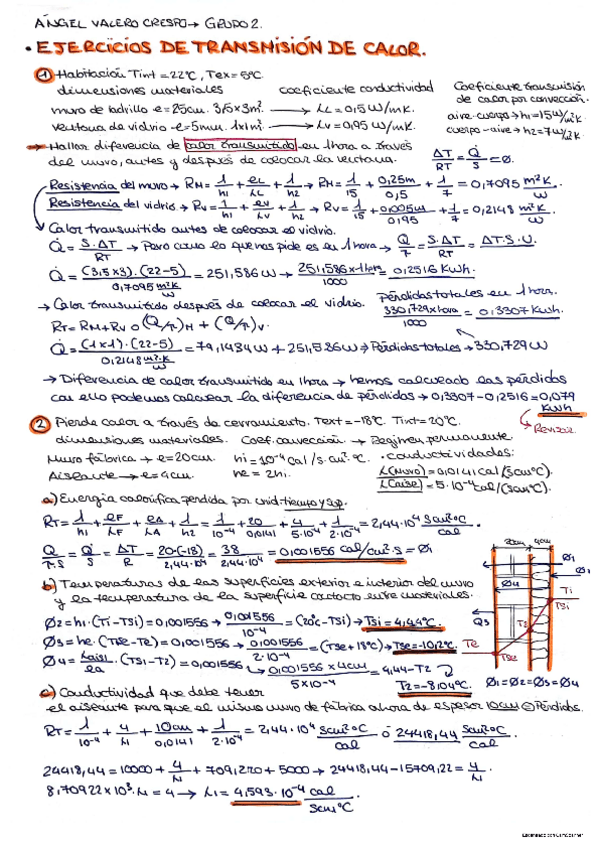 ÁNGEL VALERO CRESPO → GRUPO 2.
• EJERCICIOS DE TRANSMISIÓN DE CALOR.
① Habitación Tint = 22ºC, Tex = 5ºC.
dimensiones materiales coeficiente conductividad Coeficiente transmisión de calor por convección.
muro de ladrillo e = 25cm. 3,5x3m². → λL = 0,5 W/mK. aire-cuerpo → h1 = 15 W/m²K
ventana de vidrio - e = 5mm. 1x1m². → λv = 0,95 W/mK. cuerpo-aire → h2 = 7 W/m²K
→ Hallar diferencia de calor transmitido en 1hora a través
del muro, antes y después de colocar la ventana. ΔT/RT = Q̇/S = Ø.
Resistencia del muro → RM = 1/h1 + eL/λL + 1/h2 → RM = 1/15 + 0,25m/0,5 + 1/7 = 0,7095 m²K/W.
Resistencia del vidrio → RV = 1/h1 + eV/λV + 1/h2 → RV = 1/15 + 0,005m/0,95 + 1/7 = 0,2148 m²K/W.
Calor transmitido antes de colocar el vidrio.
Q̇ = S·ΔT/RT → Pero como lo que nos pide es en 1 hora → Q/T = S·ΔT/RT = ΔT·S·U.
Q̇ = (3,5x3)·(22-5)/0,7095 m²K/W = 251,586W → 251,586 x 1hora/1000 = 0,2516 Kwh.
→ Calor transmitido después de colocar el vidrio. Pérdidas totales en 1 hora.
RT = RM + RV o (Q/T)M + (Q/T)V. 330,729 x hora/1000 = 0,3307 Kwh.
Q̇ = (1x1)·(22-5)/0,2148 m²K/W = 79,1484W + 251,586W → Pérdidas totales → 330,729W
→ Diferencia de calor transmitido en 1hora → hemos calculado las pérdidas
con ello podemos calcular la diferencia de pérdidas → 0,3307-0,2516 = 0,079 Kwh
Revisar.
② Pierde calor a través de cerramiento. Text = -18ºC. Tint = 20ºC.
dimensiones materiales. Coef. convección → Regimen permanente
Muro fábrica → e = 20cm. hi = 10⁻⁴ cal/s·cm²·ºC. • Conductividades:
Aislante → e = 4cm. he = 2hi. λ(Muro) = 0,0141 cal/(scmºC).
λ(Aisl) = 5·10⁻⁴ cal/(scmºC).
a) Energía calorífica perdida por unid-tiempo y sup.
RT = 1/h1 + eF/λF + eA/λA + 1/h2 = 1/10⁻⁴ + 20/0,0141 + 4/5·10⁻⁴ + 1/2·10⁻⁴ = 2,44·10⁴ scm²ºC/cal.
Q/T·S = Q̇/S = ΔT/R = 20-(-18)/2,44·10⁴ = 38/2,44·10⁴ = 0,001556 cal/cm²·s = Ø1
20cm 4cm
b) Temperaturas de las superficies exterior e interior del muro
y la temperatura de la superficie contacto entre materiales.
Ø2 = hi·(Ti-Tsi) = 0,001556 → 0,001556/10⁻⁴ = (20ºc-Tsi) → Tsi = 4,44ºC.
Ø3 = he·(Tse-Te) = 0,001556 → 0,001556/2·10⁻⁴ = (Tse+18ºC) → Tse = -10,2ºC.
Ø4 = λaisl/ea·(Tsi-T2) = 0,001556 → 0,001556 x 4cm/5x10⁻⁴ = 4,44-T2
T2 = -8,04ºC.
Ø1 Ø2 Ø4 Ti Tsi Q3 Te Tse
Ø1 = Ø2 = Ø3 = Ø4
c) Conductividad que debe tener
el aislante para que el mismo muro de fábrica ahora de espesor 10cm = Pérdidas.
RT = 1/10⁻⁴ + 4/λ1 + 10cm/0,0141 + 1/2·10⁻⁴ = 2,44·10⁴ scm²ºC/cal ó 24418,44 scm²ºC/cal.
24418,44 = 10000 + 4/λ1 + 709,220 + 5000 → 24418,44-15709,22 = 4/λ1.
8,70922 x 10³·λ1 = 4 → λ1 = 4,593·10⁻⁴ cal/scmºC